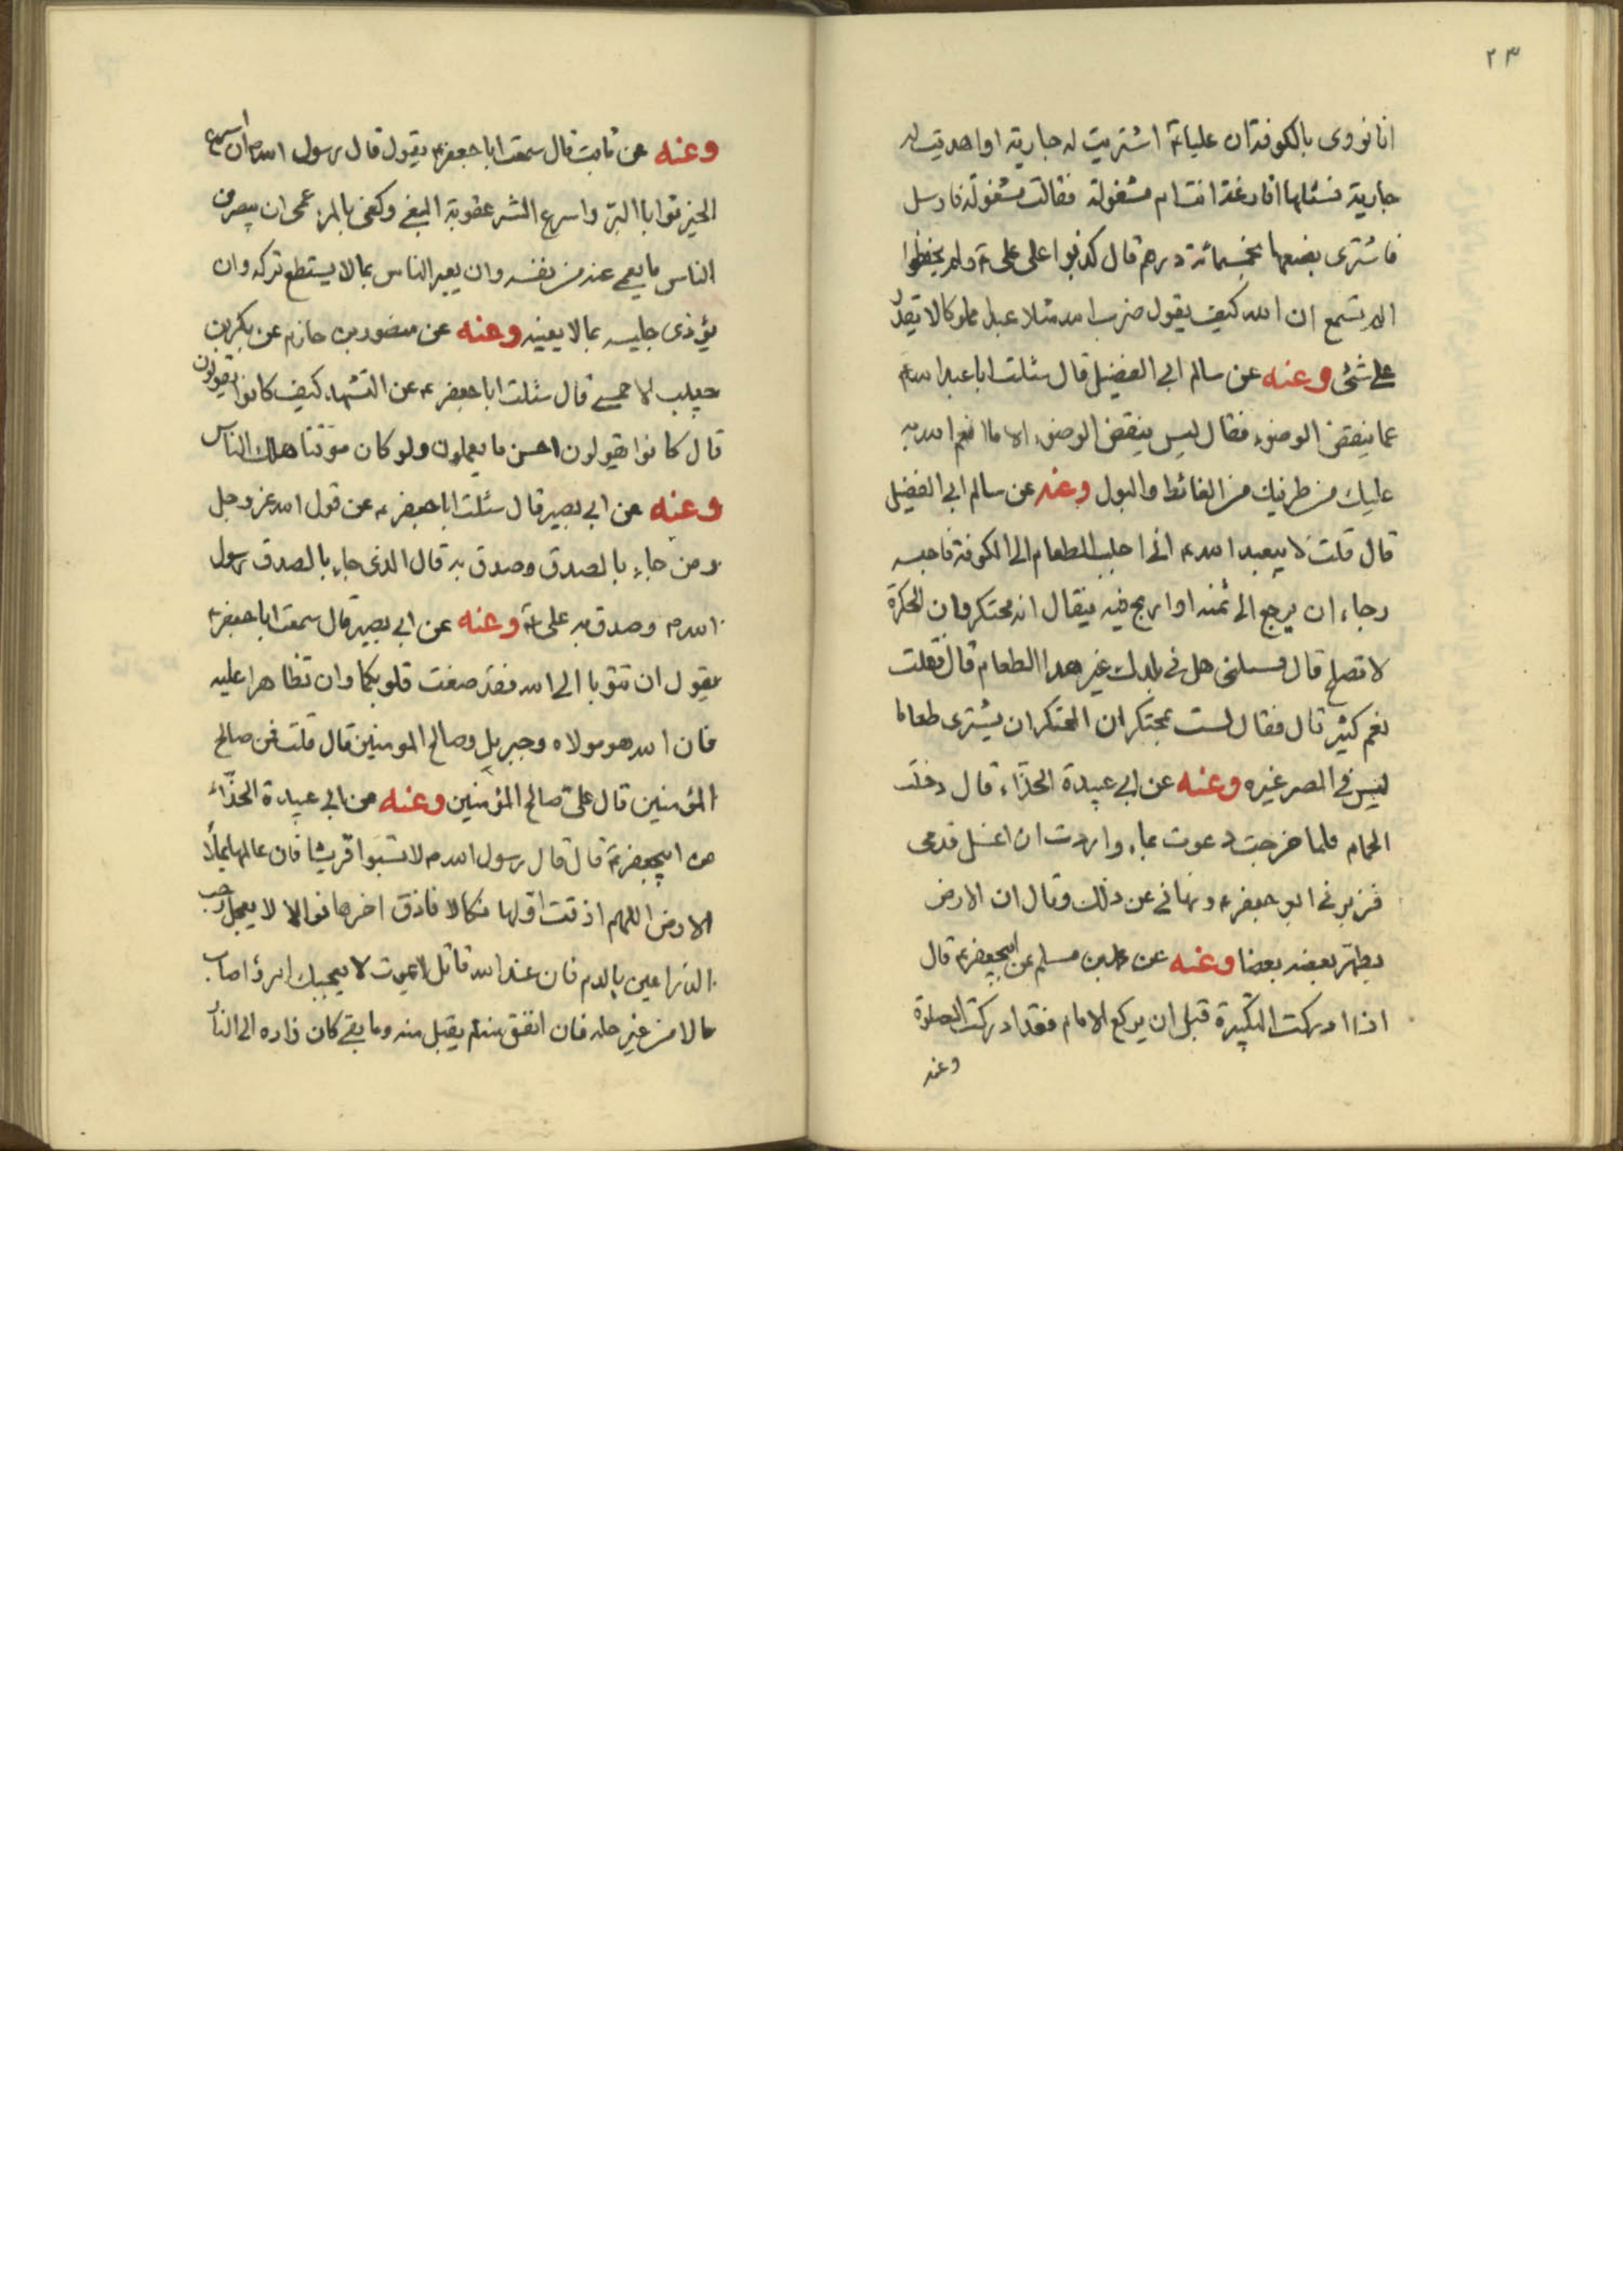 ٢٣
انا نروى بالكوفة ان عليا ع اشتريت له جارية او اهديت له
جارية فسئلها افارغة انت ام مشغولة فقالت مشغولة فارسل
فاشترى بضعها بخمسمائة درهم قال كذبوا على على ع ولم يحفظوا
الم تسمع ان الله كيف يقول ضرب الله مثلا عبدا مملوكا لا يقدر
على شئ وعنه عن سالم ابى الفضيل قال سئلت ابا عبد الله ع
عما ينقض الوضوء فقال ليس ينقض الوضوء الا ما انعم الله به
عليك من طرفيك من الغائط والبول وعنه عن سالم ابى الفضيل
قال قلت لابيعبد الله ع انى اجلب الطعام الى الكوفة فاحبسه
رجاء ان يرجع الى ثمنه او اربح فيه فيقال انه محتكر وان الحكرة
لا تصلح قال فسئلنى هل فى بلدك غير هذا الطعام قال فقلت
نعم كثير قال فقال لست بمحتكر ان المحتكر ان يشترى طعاما
ليس فى المصر غيره وعنه عن ابى عبيدة الحذاء قال دخلت
الحمام فلما خرجت دعوت بماء واردت ان اغسل قدمى
فزبرنى ابو جعفر ع ونهانى عن ذلك وقال ان الارض
يطهر بعضه بعضا وعنه عن محمد بن مسلم عن ابيجعفر ع قال
اذا ادركت التكبيرة قبل ان يركع الامام فقد ادركت الصلوة
وعنه
وعنه عن ثابت قال سمعت ابا جعفر ع يقول قال رسول الله ص ان اسرع
الخير ثوابا البر واسرع الشر عقوبة البغى وكفى بالمرء عمى ان يبصر من
الناس ما يعمى عنه من نفسه وان يعير الناس بما لا يستطع تركه وان
يؤذى جليسه بما لا يعنيه وعنه عن منصور بن حازم عن بكر بن
حبيب الاحمسى قال سئلت ابا جعفر ع عن التشهد كيف كانوا يقولون
قال كانوا يقولون احسن ما يعملون ولو كان موقتا هلك الناس
وعنه عن ابى بصير قال سئلت ابا جعفر ع عن قول الله عز وجل
ومن جاء بالصدق وصدق به قال الذى جاء بالصدق رسول
الله ص وصدق به على ع وعنه عن ابى بصير قال سمعت ابا جعفر ع
يقول ان تتوبا الى الله فقد صغت قلوبكما وان تظاهرا عليه
فان الله هو مولاه وجبريل وصالح المومنين قال قلت فمن صالح
المؤمنين قال على صالح المؤمنين وعنه عن ابى عبيدة الحذاء
عن ابيجعفر ع قال قال رسول الله ص لا تسبوا قريشا فان عالمها يملأ
الارض اللهم اذقت اولها نكالا فاذق اخرها نوالا لا يعجبك رحب
الذراعين بالدم فان عند الله قاتلا لا يموت لا يعجبك امرؤ اصاب
مالا من غير حله فان انفق منه لم يقبل منه وما بقى كان زاده الى النار